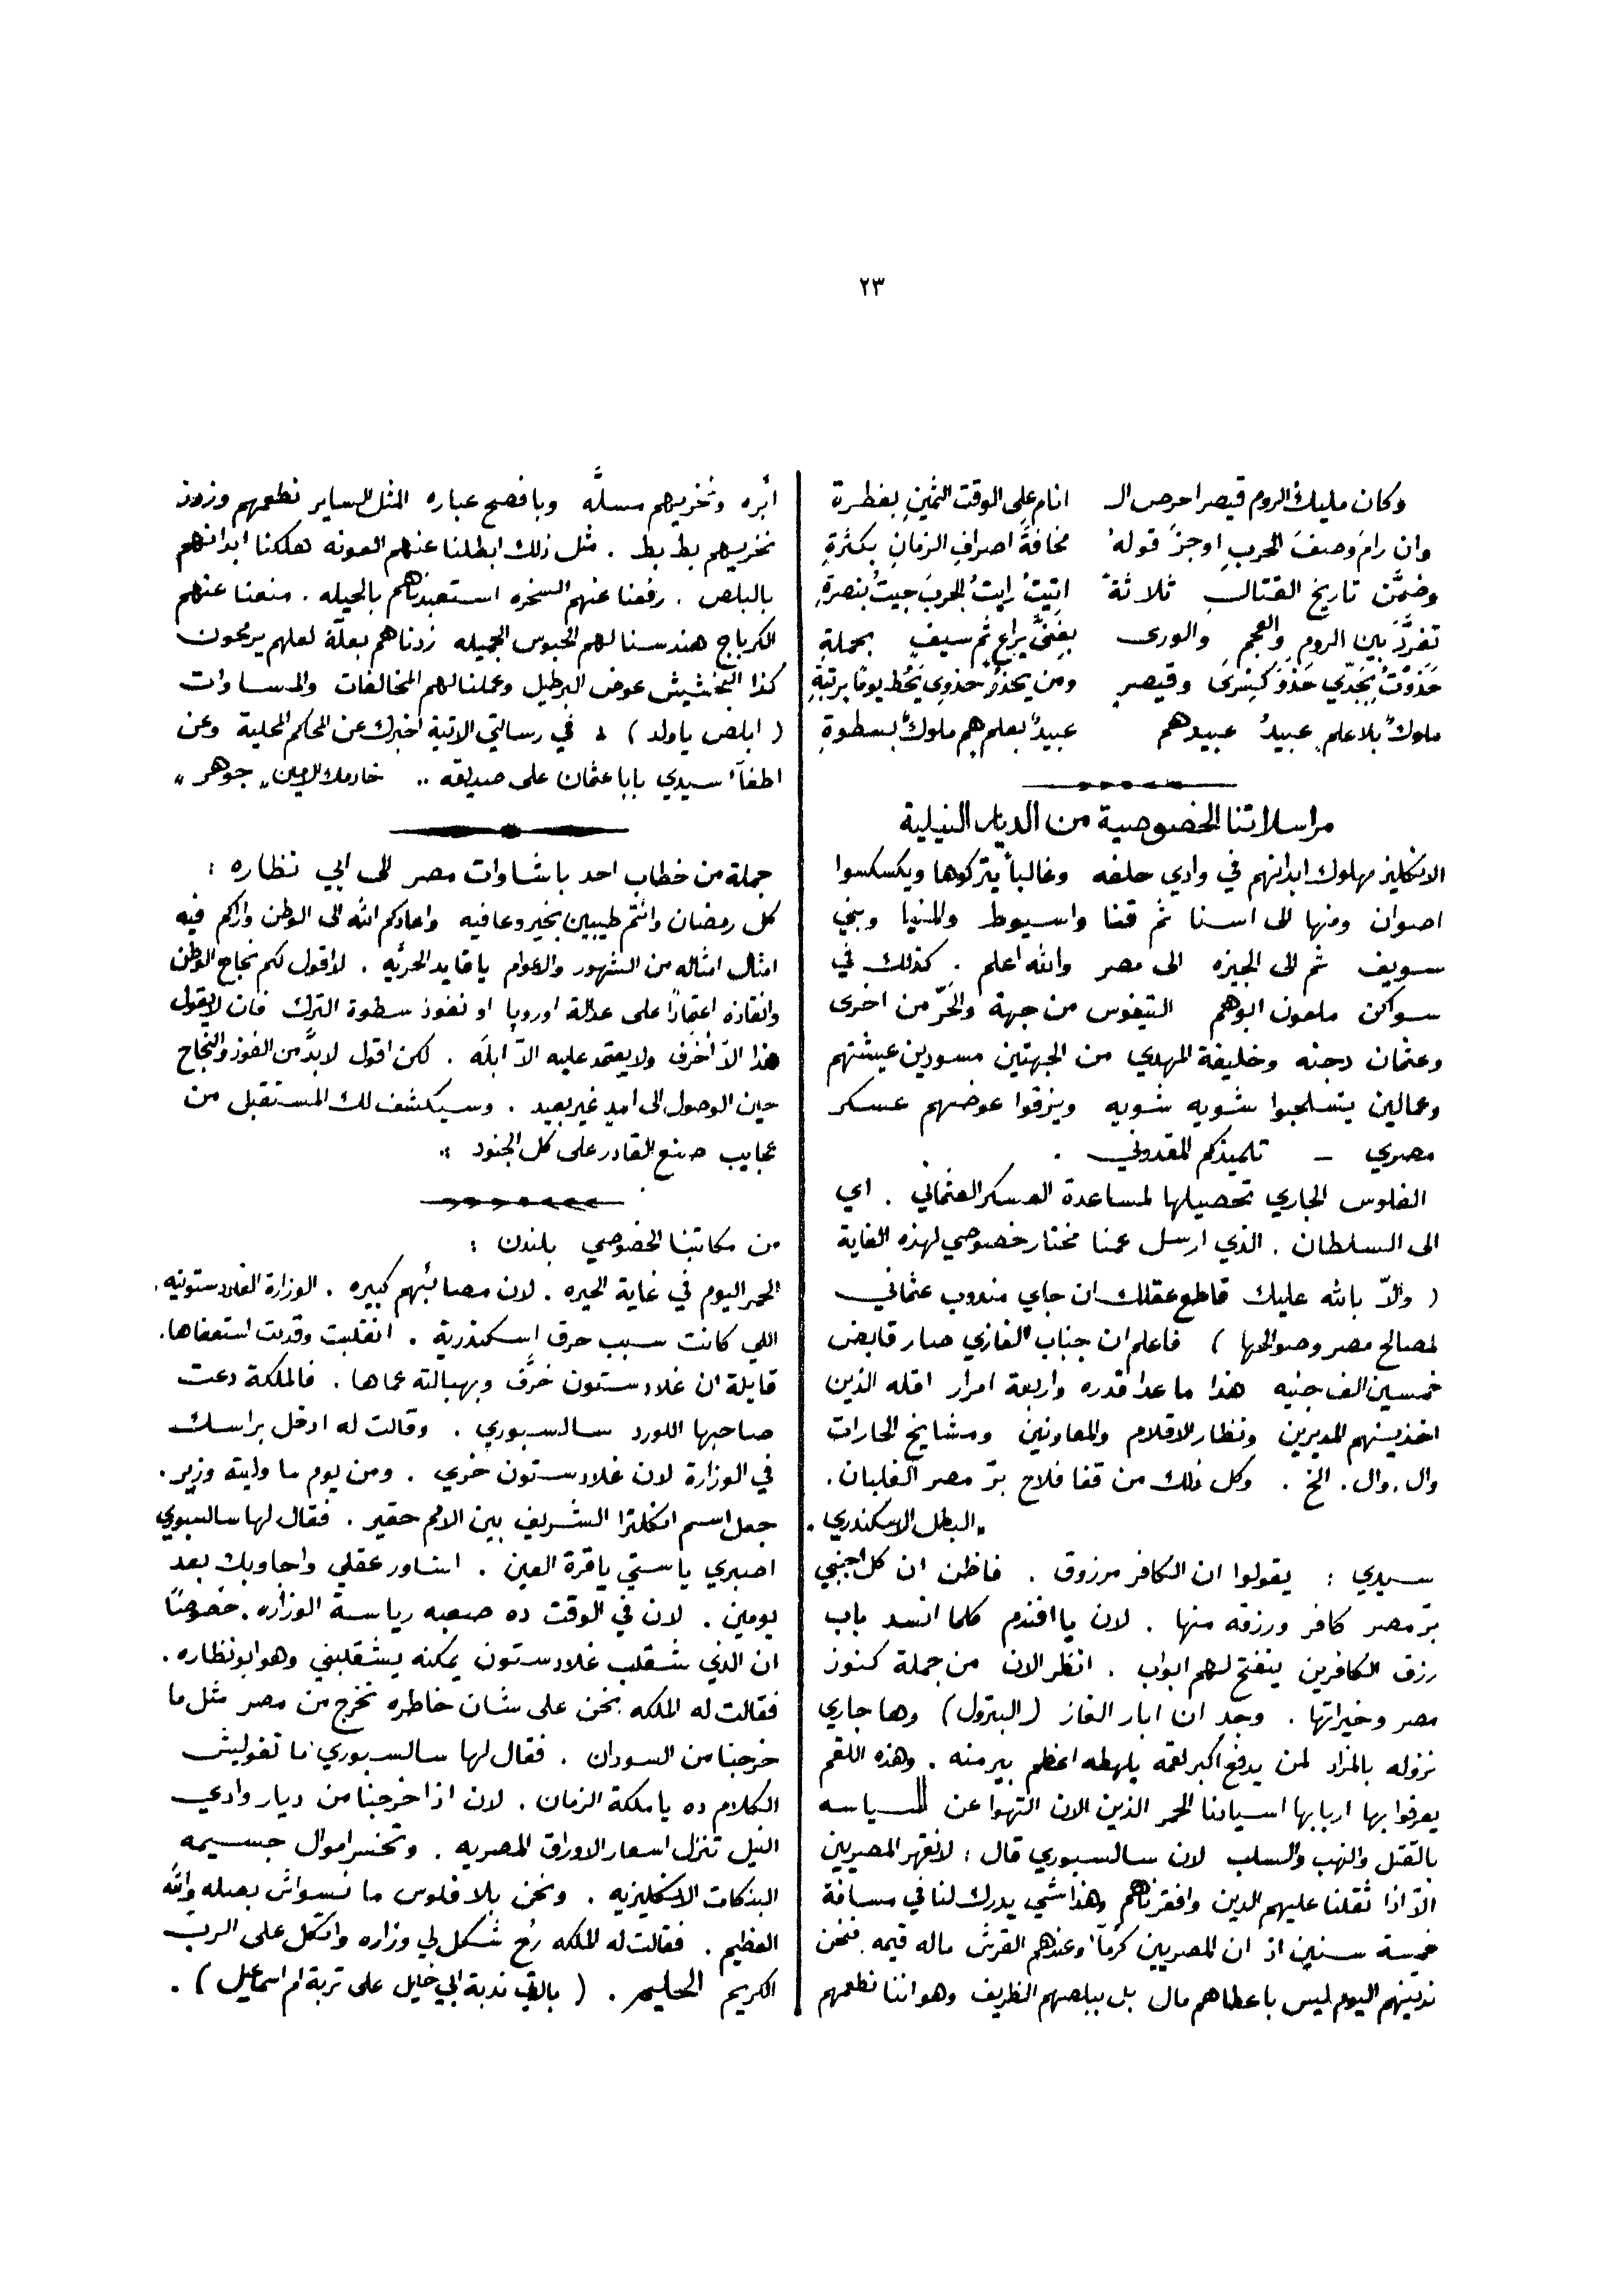 ٢٣
وكان مليك الروم قيصر احرص الـ انام على الوقت الثمينِ بفطرة
وان رامَ وصفَ الحربِ اوجزَ قولهُ مخافةَ اصرافِ الزمانِ بكثرةِ
وضمَّن تاريخ القتالِ ثلاثةً اتيتُ رايتُ الحربَ جيتُ بنصرةِ
تفرَّدَ بين الرومِ والعجمِ والورى بفنَّي يراعٍ ثم سيفٍ بحملةِ
حَذَوتُ بجَدّي حَذوَ كِسرى وقيصرٍ ومن يحذُ حذوي يَحُط يومًا برتبةِ
ملوكٌ بلا علمٍ عبيدُ عبيدهم عبيدٌ بعلمٍ هم ملوكٌ بسطوةِ
مراسلاتنا الخصوصية من الديار النيلية
الانكليز مهلوك ابدانهم في وادي حلفه وغالباً يتركوها ويكسكسوا
اصوان ومنها الى اسنا ثم قنا واسيوط والمنيا وبني
سويف ثم الى الجيزه الى مصر والله اعلم . كذلك في
سواكن ملعون ابوهم التيفوس من جهة والحَرّ من اخرى
وعثمان دجنه وخليفة المهدي من الجهتين مسودين عيشتهم
وعمالين يتسلحبوا شويه شويه ويزقوا عوضهم عسكر
مصري — تلميذكم المقدوني .
الفلوس الجاري تحصيلها لمساعدة العسكر العثماني . اي
الى السلطان . الذي ارسل عمنا مختار خصوصي لهذه الغاية
( والّا بالله عليك قاطع عقلك ان جاي مندوب عثماني
لمصالح مصر وصوالحها ) فاعلم ان جناب الغازي صار قابض
خمسين الف جنيه هذا ما عدا قدره واربعة امرار اقله الذين
اخذينهم المديرين ونظار الاقلام والمعاونين ومشايخ الحارات
وال . وال . الخ . وكل ذلك من قفا فلاح برّ مصر الغلبان .
„ البطل الاسكندري .
سيدي : يقولوا ان الكافر مرزوق . فاظن ان كل اجنبي
برّ مصر كافر ورزقه منها . لان يا افندم كلما انسد باب
رزق الكافرين ينفتح لهم ابواب . انظر الان من جملة كنوز
مصر وخيراتها . وجد ان ابار الغاز (البترول) وها جاري
نزوله بالمزاد لمن يدفع اكبر لقمه يلهطه اعظم بير منه . وهذه اللقم
يعرفوا بها اربابها اسيادنا الحمر الذين الان التهوا عن السياسه
بالقتل والنهب والسلب لان سالسبوري قال : لا نقهر المصريين
الّا اذا ثقلنا عليهم الدين وافقرناهم وهذا شي يدرك لنا في مسافة
خمسة سنين اذ ان المصريين كرمآء وعندهم القرش ماله قيمه فنحن
ندينهم اليوم ليس باعطاهم مال بل ببلصهم الظريف وهو اننا نطعمهم
أبره ونخريهم مسلَّه وبافصح عباره المثل الساير نطعمهم وزوز
نخريهم بط بط . مثل ذلك ابطلنا عنهم العونه هلكنا ابدانهم
بالبلص . رفعنا عنهم السخره استعبدناهم بالحيله . منعنا عنهم
الكرباج هندسنا لهم الحبوس الجميله زدناهم بعلّة لعلهم يرمحون
كذا البخشيش عوض البرطيل وعملنا لهم المخالفات والمساوات
( ابلص يا ولد ) . في رسالتي الاتية اخبرك عن المحاكم المحلية وعن
اطفآء سيدي بابا عثمان على صديقه .. خادمك الامين „ جوهر „
جملة من خطاب احد باشاوات مصر الى ابي نظاره :
كل رمضان وانتم طيبين بخير وعافيه واعادكم الله الى الوطن واراكم فيه
امثال امثاله من الشهور والاعوام يا قايد الحريه . لا اقول لكم نجاح الوطن
وانقاذه اعتمادًا على عدالة اوروپا او نفوذ سطوة الترك فان لا يقول
هذا الاّ أخرَف ولا يعتمد عليه الاّ ابلَه . لكن اقول لابدَّ من الفوز والنجاح
حين الوصول الى امدٍ غير بعيد . وسيكشف لك المستقبل من
عجايب صنع القادر على كل الجنود .
من مكاتبنا الخصوصي بلندن :
الحمر اليوم في غاية الحيره . لان مصائبهم كبيره . الوزارة الغلادستونيه .
اللي كانت سبب حرق اسكندرية . انقلبت وقدمت استعفاها .
قايلة ان غلادستون خرَّف وبهبالته عماها . فالملكة دعت
صاحبها اللورد سالسبوري . وقالت له ادخل براسك
في الوزارة لان غلادستون خري . ومن يوم ما وليته وزير .
جعل اسم انكلترا الشريف بين الامم حقير . فقال لها سالسبوري
اصبري يا ستي يا قرة العين . اشاور عقلي واجاوبك بعد
يومين . لان في الوقت ده صعبه رياسة الوزاره . خصوصًا
ان الذي شقلب غلادستون يمكنه يشقلبني وهو ابو نظاره .
فقالت له الملكه نحن على شان خاطره نخرج من مصر مثل ما
خرجنا من السودان . فقال لها سالسبوري ما تقوليش
الكلام ده يا ملكة الزمان . لان اذا خرجنا من ديار وادي
النيل تنزل اسعار الاوراق المصريه . وتخسر اموال جسيمه
البنكات الانكليزيه . ونحن بلا فلوس ما نسواش بصله والله
العظيم . فقالت له الملكه رُح شكل لي وزاره واتكل على الرب
الكريم الحليم . ( باقي ندبة ابي خليل على تربة ام اسماعيل ) .